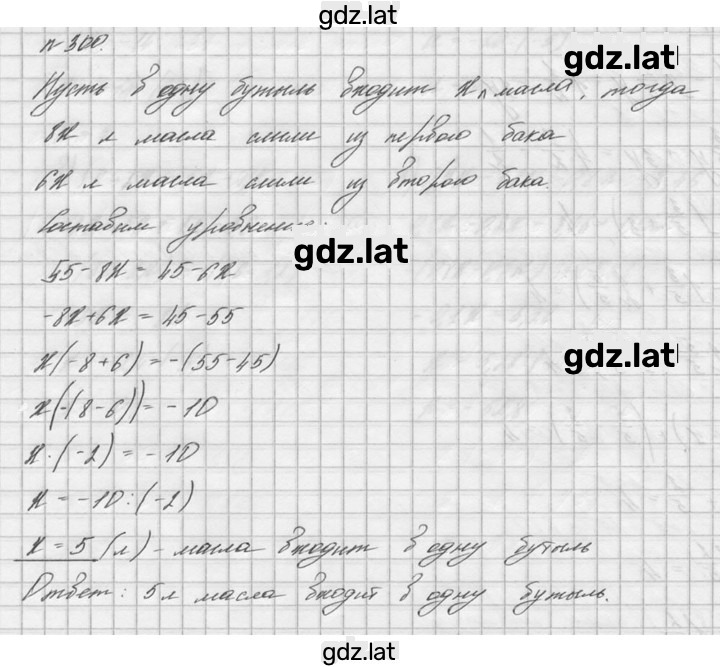 gdz.lat
n 300.
gdz.lat
Пусть в одну бутыль входит x л масла, тогда
8x л масла слили из первого бака
6x л масла слили из второго бака.
Составим уравнение:
gdz.lat
55-8x = 45-6x
-8x+6x = 45-55
x(-8+6) = -(55-45)
gdz.lat
x(-(8-6)) = -10
x·(-2) = -10
x = -10:(-2)
x = 5 (л) - масла входит в одну бутыль
Ответ: 5 л масла входит в одну бутыль.
gdz.lat